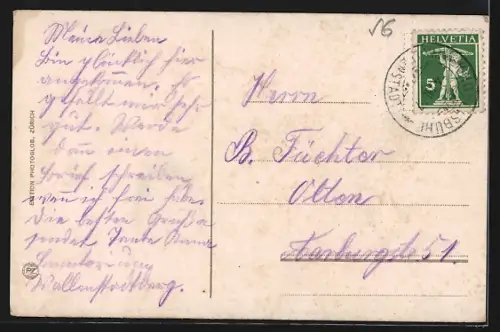 Meine Lieben
bin glücklich hier
angekommen. Es
gefällt mir sehr
gut. Werde
dann einen
Brief schreiben
wenn ich frei habe.
Die besten Grüsse
sendet Tante
Sanatorium
Wallenstadtberg.
EDITION PHOTOGLOB, ZÜRICH
PZ
56
HELVETIA
5
Herrn
B. Füchter
Olten
Aarburgstr. 51.